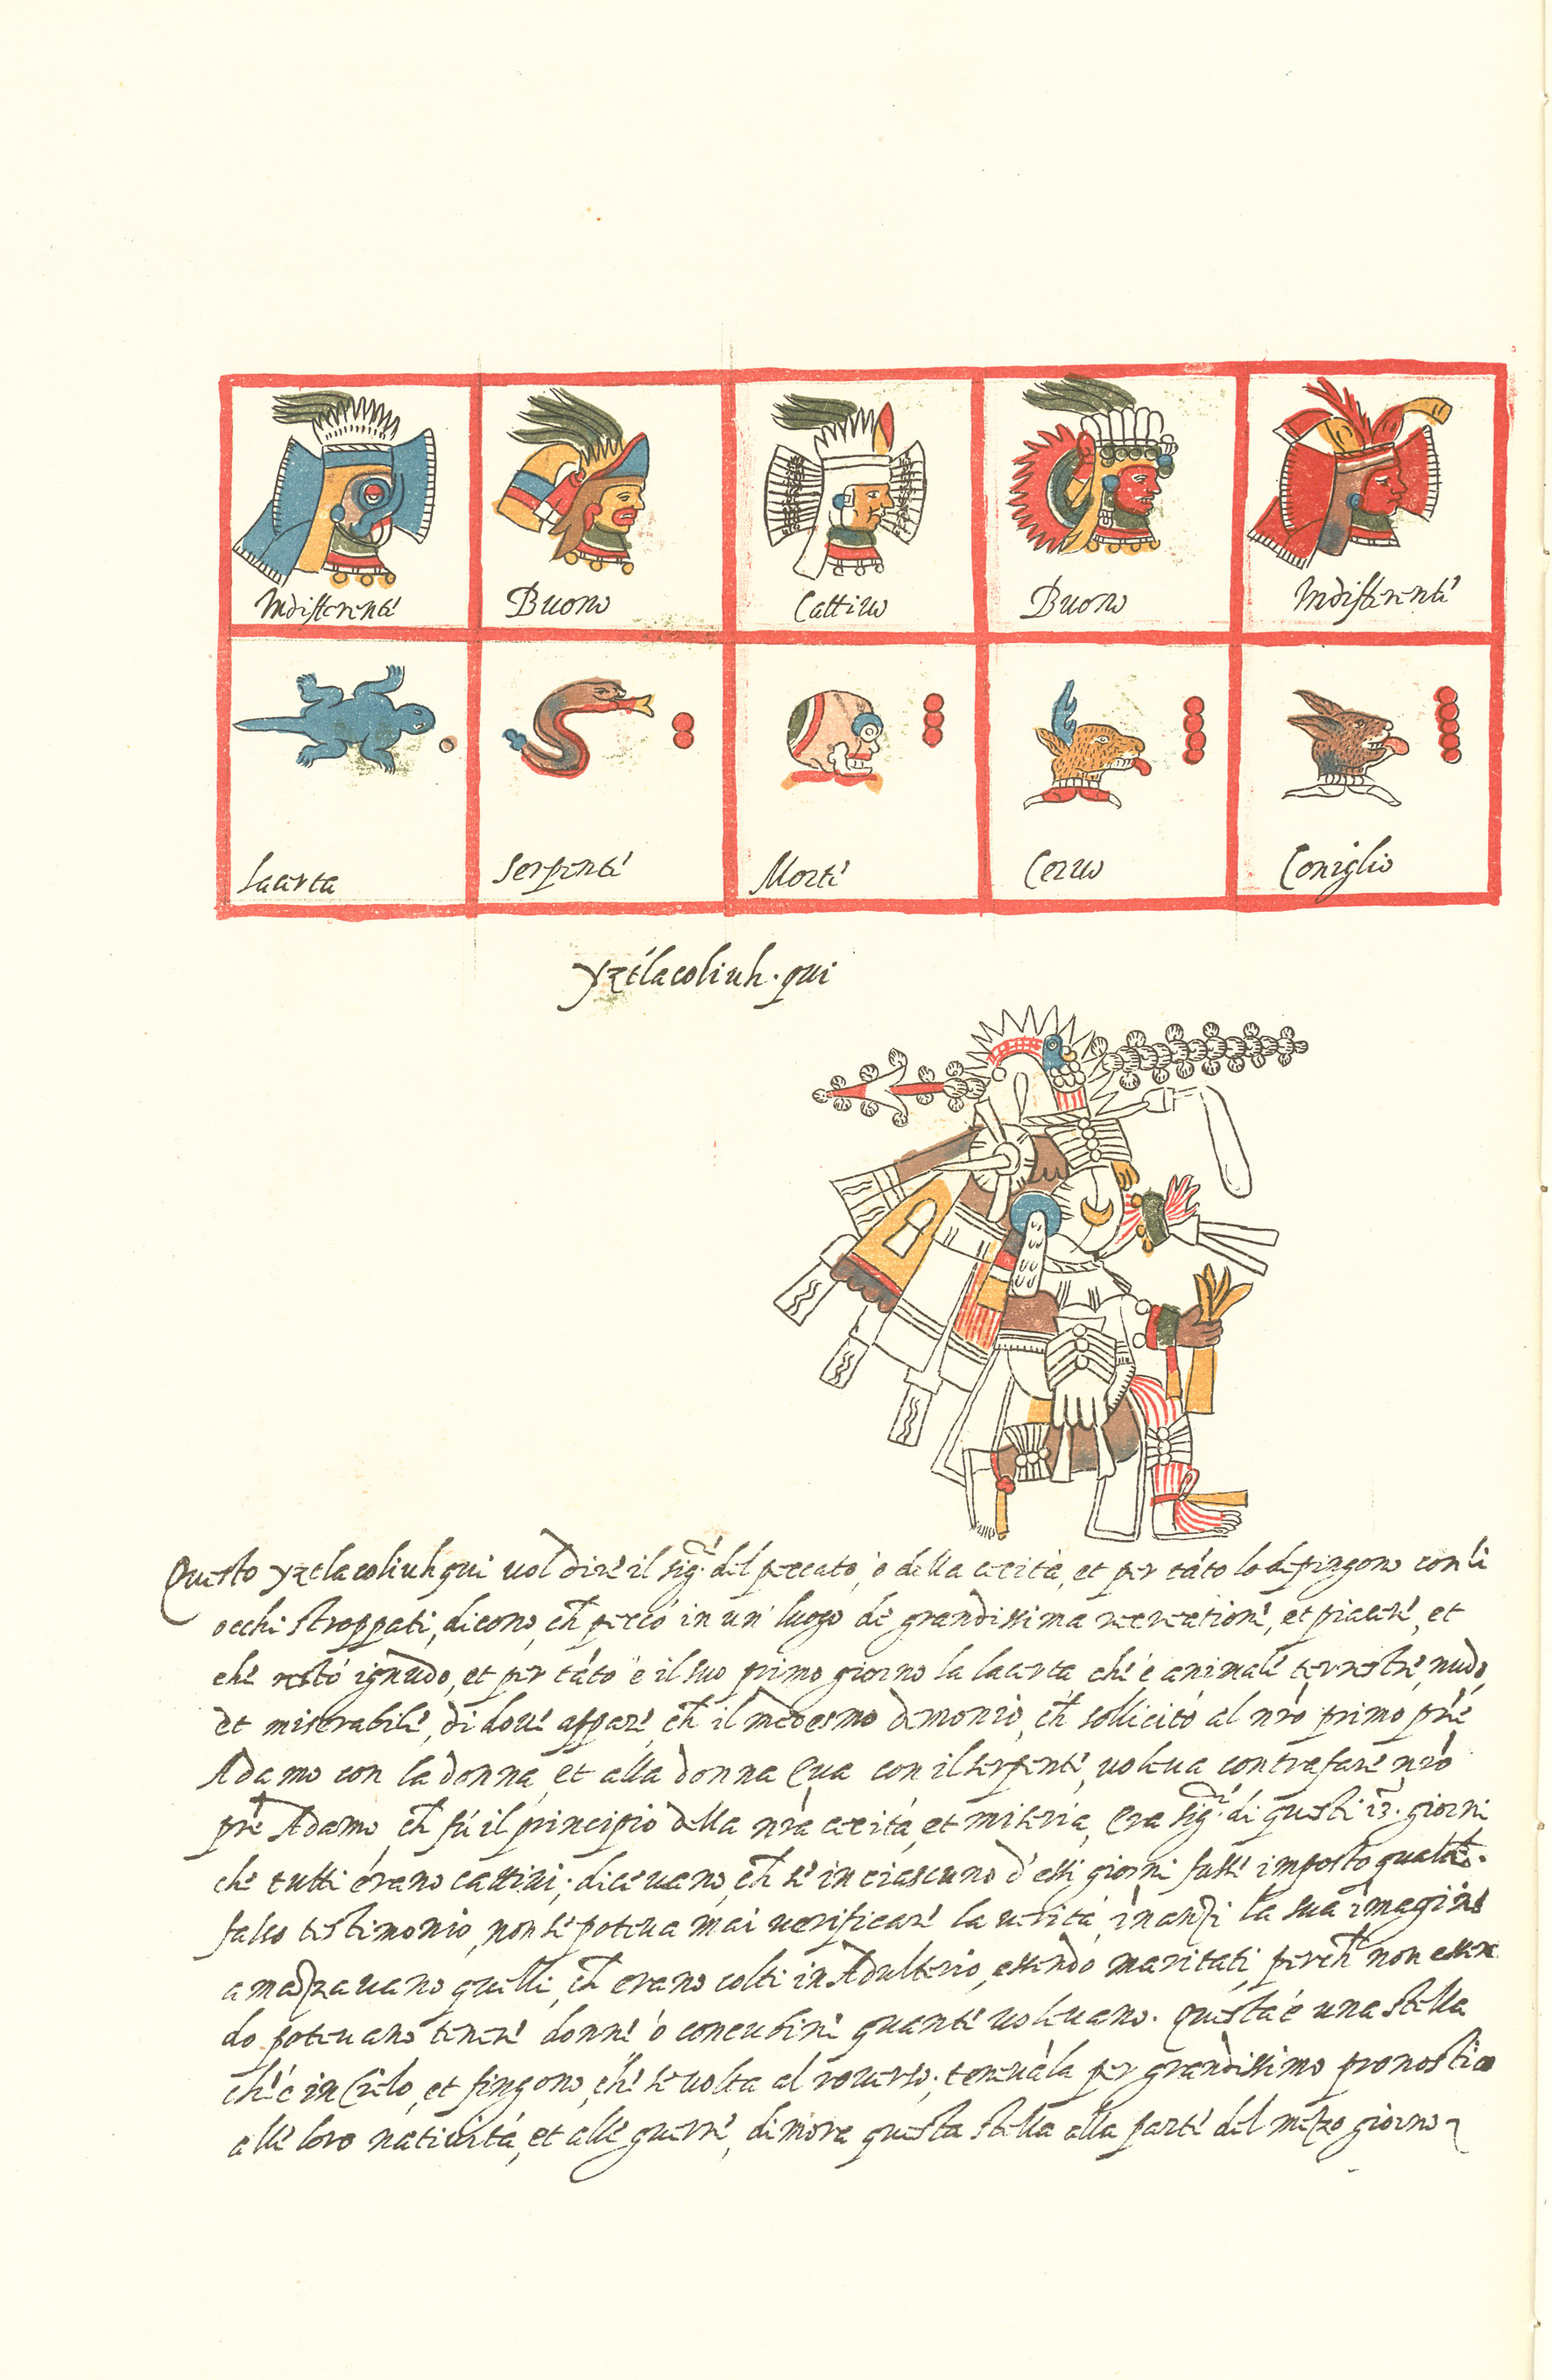 Indifferente
Buono
Cattiuo
Buono
Indifferente
Lacerta
Serpente
Morte
Ceruo
Coniglio
yztlacoliuh·qui
Questo yztlacoliuhqui uol dire il sig.re del peccato, ò della cecità, et per tãto lo depingono con li
occhi stroppati, dicono, ch̃ peccó in un' luogo de grandissima recreatione, et piacere, et
che restò ignudo, et per tãto è il suo primo giorno la lacerta che è animale terrestre, nudo,
et miserabile, di doue appare, ch̃ il medesmo demonio, ch̃ sollicitò al nr̃o primo pr̃e
Adamo con la donna, et alla donna Eua con il serpente, uoleua contrafare nr̃o
pr̃e Adamo, ch̃ fú il principio della nr̃a cecità, et miseria, Era sig.re di questi 13. giorni
che tutti erano cattiui; diceuano, ch̃ se in ciascuno d'essi giorni fusse imposto qualch̃
falso testimonio, non se poteua mai uerificare la uerità, inanzi la sua imagine
amazzauano quelli, ch̃ erano colti in Adulterio, essendo maritati, perch̃ non essen
do poteuano tenere donne ò concubine quante uoleuano. Questa é una stella
ch'é in Cielo, et fingono, che se uolta al rouerso; teneuãla per grandissimo pronostico
alle loro natiuità, et alle guerre, dimora questa stella alla parte del mezo giorno